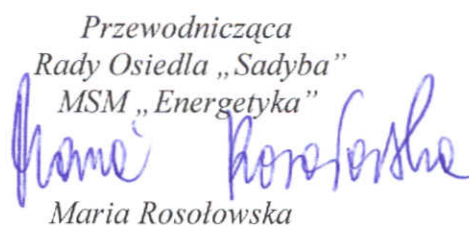 Przewodnicząca
Rady Osiedla „Sadyba”
MSM „Energetyka”
Maria Rosołowska
Maria Rosołowska